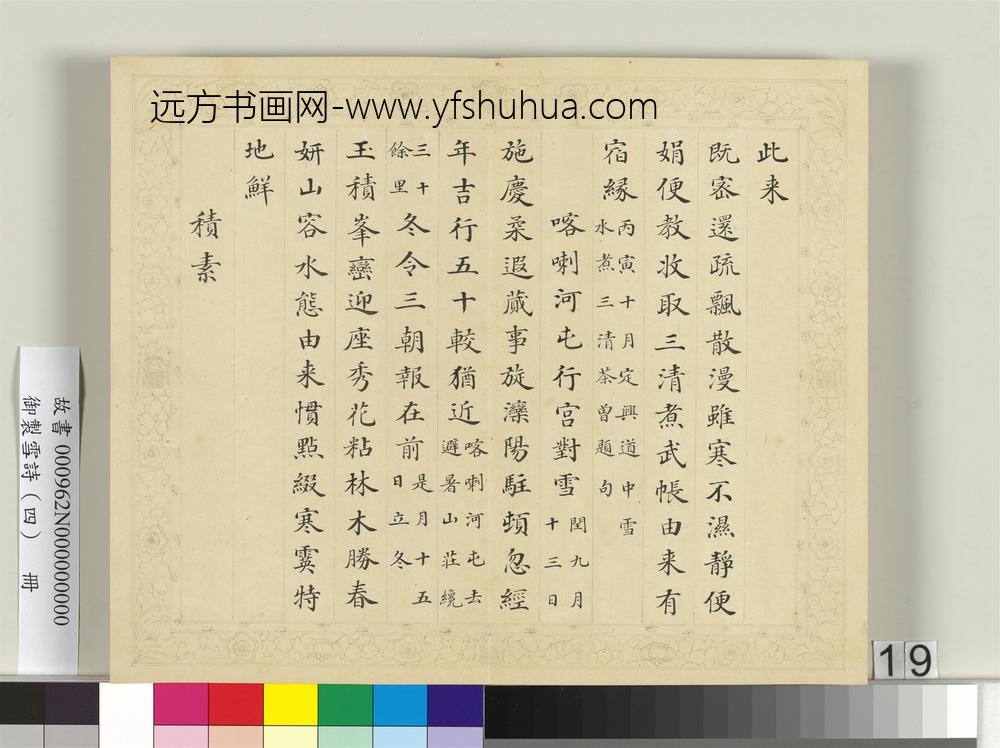 远方书画网-www.yfshuhua.com
此来
既密還疏飄散漫雖寒不濕靜便
娟便教收取三清煮武帳由来有
宿緣丙寅十月定興道中雪水煮三清茶曾題句
喀喇河屯行宮對雪閏九月十三日
施慶柔遐蕆事旋灤陽駐頓忽經
年吉行五十較猶近喀喇河屯去避暑山莊纔
三十餘里冬令三朝報在前是月十五日立冬
玉積峯巒迎座秀花粘林木勝春
妍山容水態由来慣點綴寒霙特
地鮮
積素
故書 000962N000000000
御製雪詩（四） 冊
19